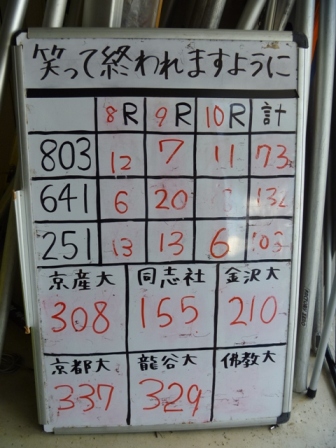 笑って終われますように
8R 9R 10R 計
803 12 7 11 73
641 6 20
251 13 13 6
京産大 同志社 金沢大
308 155 210
京都大 龍谷大 佛教大
337 329